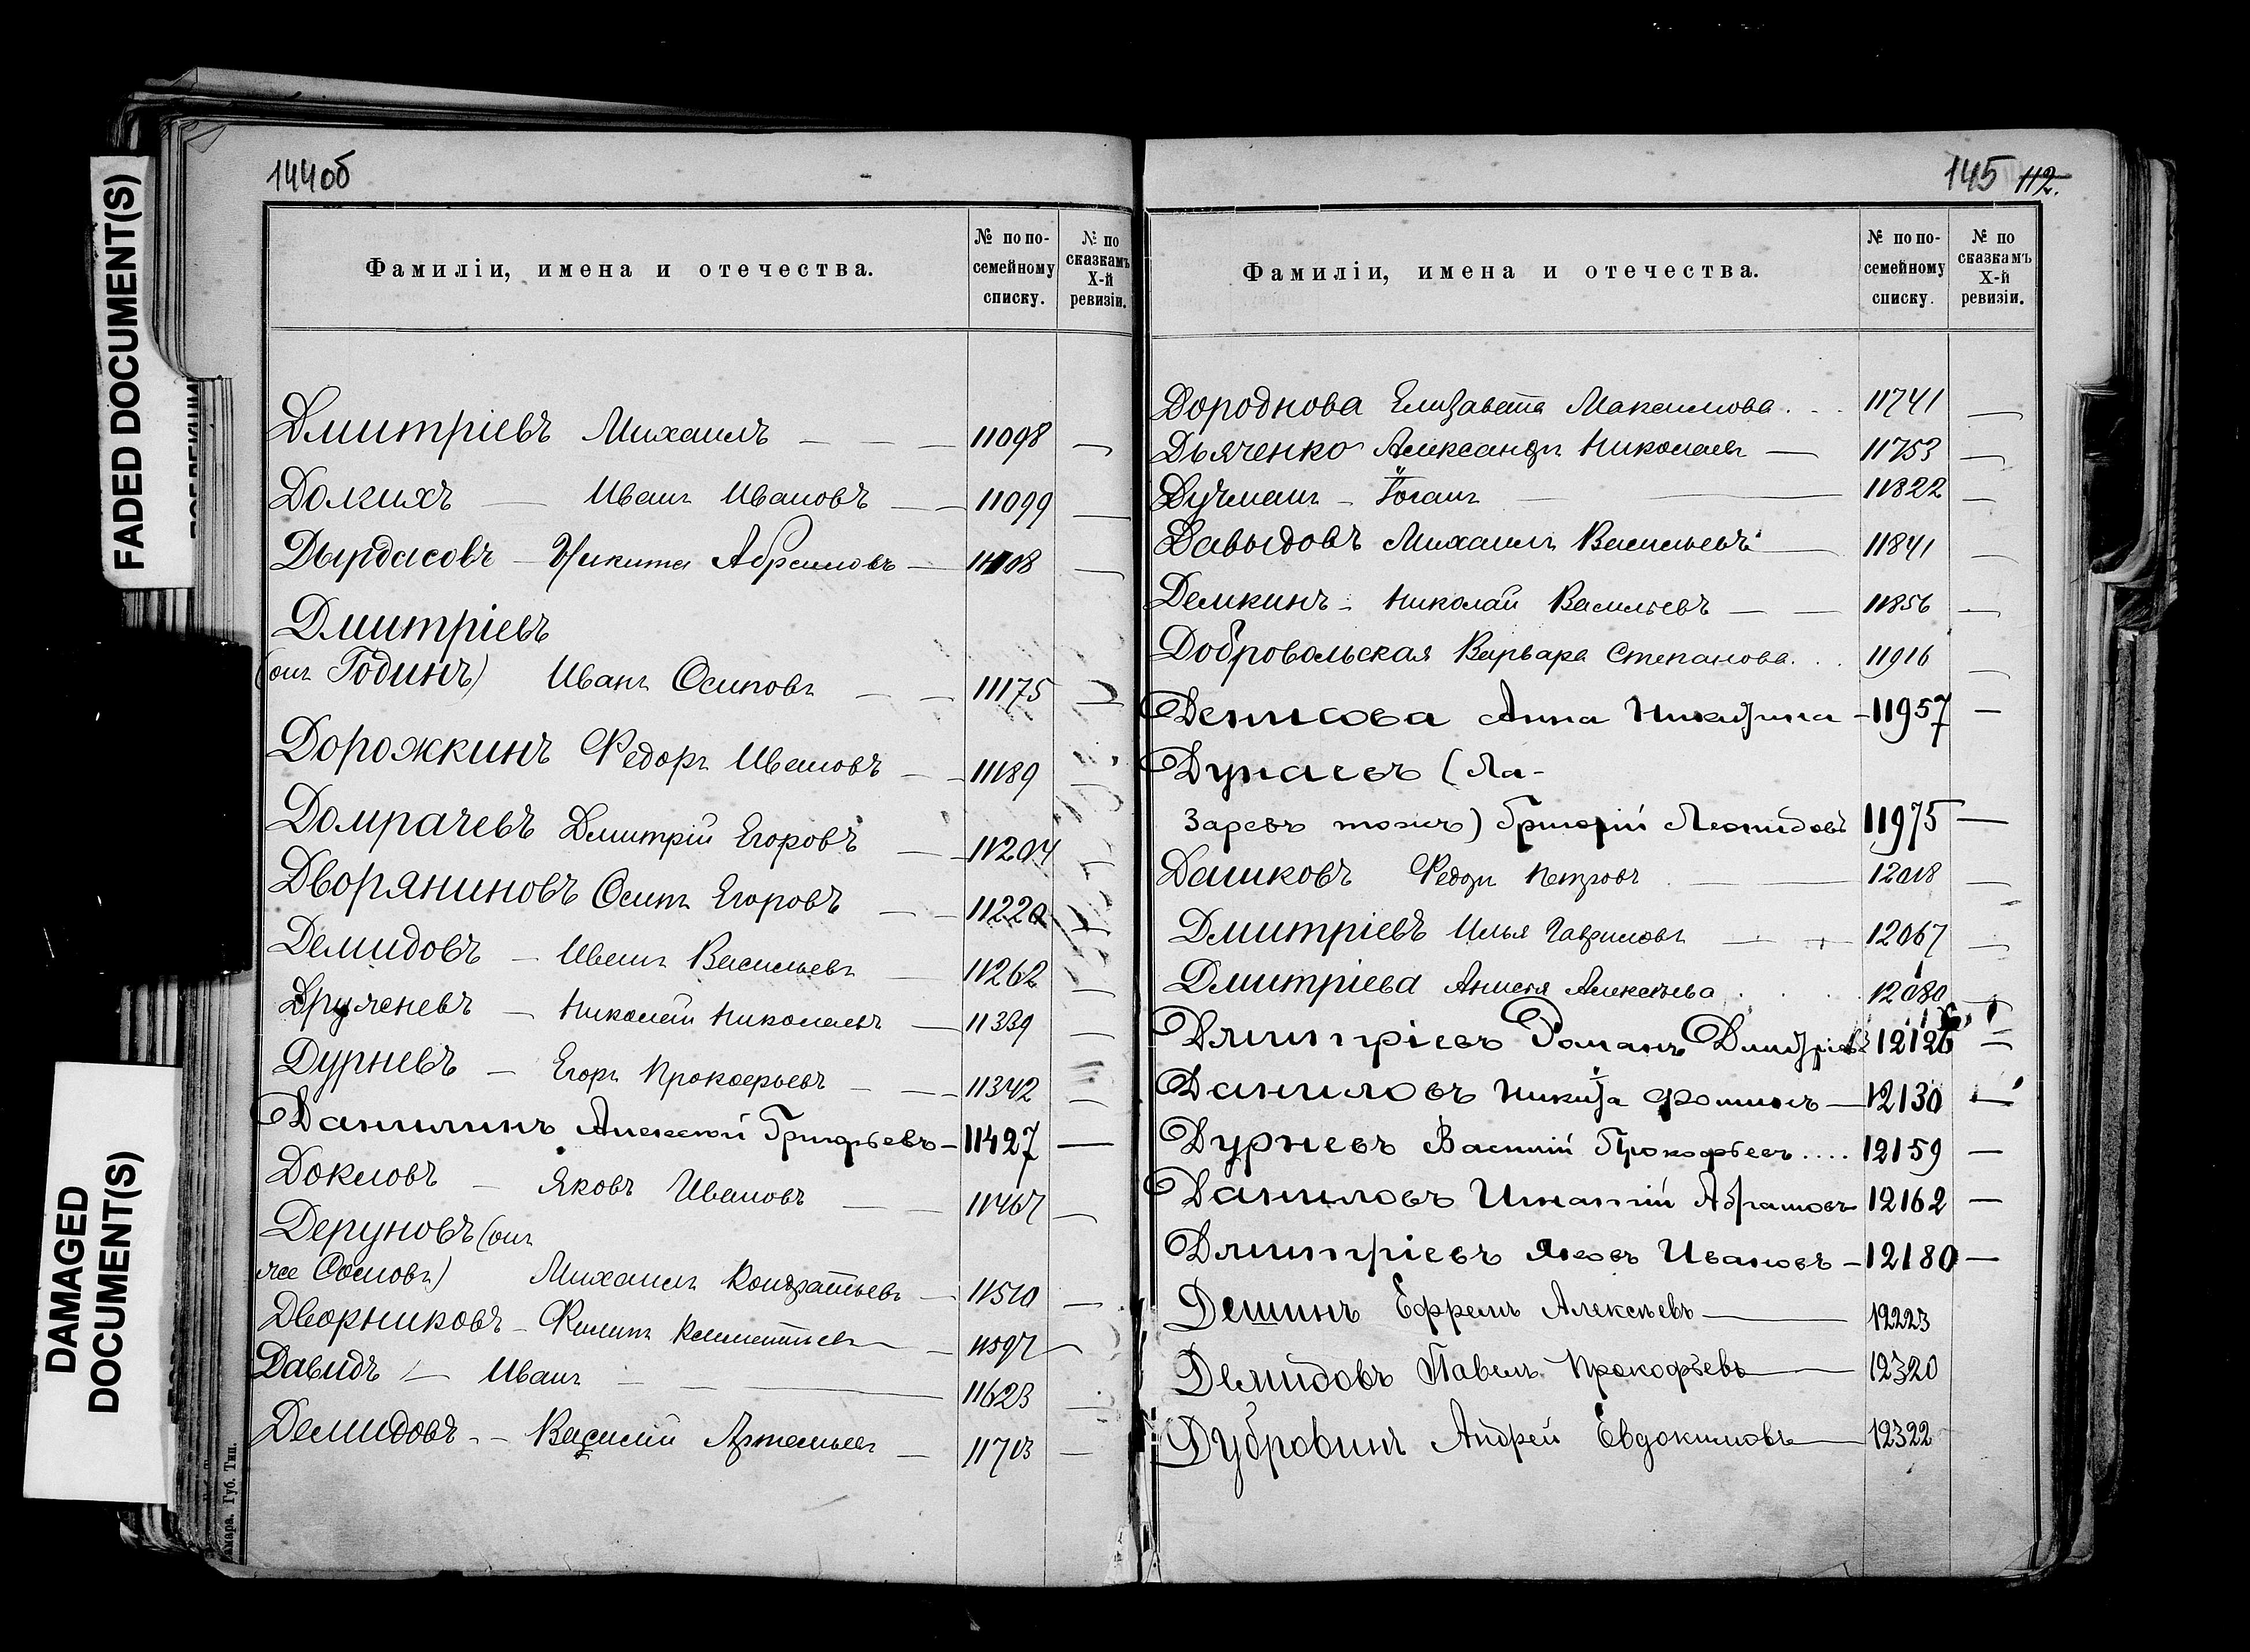 FADED DOCUMENT(S)
DAMAGED
DOCUMENT(S)
144об
Фамиліи, имена и отечества.
№ по по-
семейному
списку.
№ по
сказкамъ
X-й
ревизіи.
Дмитріевъ Михаилъ — — — 11098 —
Долгихъ — Иванъ Ивановъ — — 11099 —
Дырдасовъ — Никита Абрамовъ — 11108 —
Дмитріевъ
(онъ Годинъ) Иванъ Осиповъ — — 11175 —
Дорожкинъ Федоръ Ивановъ — — 11189
Домрачевъ Дмитрій Егоровъ — — 11204
Дворяниновъ Осипъ Егоровъ — — 11220
Демидовъ — Иванъ Васильевъ — 11262 —
Николай Николаевъ — 11339 —
Дурневъ — Егоръ Прокофьевъ — — 11342 —
Данилинъ Алексѣй Григорьевъ — 11427 —
Яковъ Ивановъ — — 11467 —
Деруновъ (онъ
же Сомовъ) Михаилъ Кондратьевъ — 11510 —
Дворниковъ — Филипъ Климентьевъ — 11597 —
Давидъ — Иванъ — — — 11623 —
Демидовъ — — Василій Артемьевъ — 11713 —
Самара. Губ. Тип.
145 112.
Фамиліи, имена и отечества.
№ по по-
семейному
списку.
№ по
сказкамъ
X-й
ревизіи.
Дороднова Елизавета Максимова . . . 11741 —
Дьяченко Александръ Николаевъ — 11753 —
Дучманъ — Іоганъ — — 11822 —
Давыдовъ Михаилъ Васильевъ — 11841 —
Демкинъ — Николай Васильевъ — — 11856 —
Добровольская Варвара Степанова . . . 11916 —
Денисова Анна Никитина — 11957 —
Дунаевъ (Ла-
заревъ тожъ) Григорій Леонидовъ 11975 —
Дашковъ Федоръ Петровъ . — — 12018 —
Дмитріевъ Илья Гавриловъ — — 12067 —
Дмитріева Анисія Алексѣева . . . 12080 —
Дмитріевъ Романъ Дмитріевъ 12126 —
Даниловъ Никита Фоминъ — 12130 —
Дурневъ Василій Прокофьевъ .... 12159 —
Даниловъ Игнатій Абрамовъ — 12162 —
Дмитріевъ Яковъ Ивановъ — 12180 —
Дешинъ Ефремъ Алексѣевъ — 12223
Демидовъ Павелъ Прокофьевъ — 12320
Дубровинъ Андрей Евдокимовъ — 12322